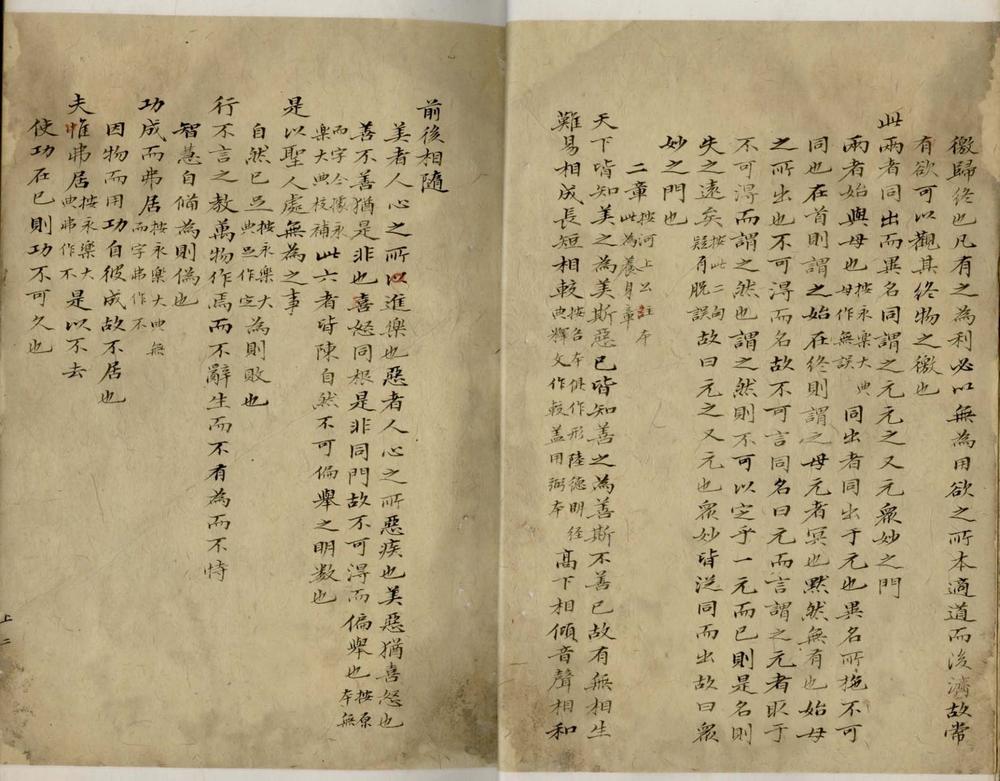 徼歸終也凡有之為利必以無為用欲之所本適道而後濟故常
有欲可以觀其終物之徼也
此兩者同出而異名同謂之元元之又元衆妙之門
兩者始與母也按永樂大典母作無誤同出者同出于元也異名所施不可
同也在首則謂之始在終則謂之母元者冥也黙然無有也始母
之所出也不可得而名故不可言同名曰元而言謂之元者取于
不可得而謂之然也謂之然則不可以定乎一元而已則是名則
失之遠矣按此二句疑有脱誤故曰元之又元也衆妙皆從同而出故曰衆
妙之門也
二章按河上公註本此為養身章
天下皆知美之為美斯惡已皆知善之為善斯不善已故有無相生
難易相成長短相較按各本俱作形陸德明經典釋文作較蓋用弼本高下相傾音聲相和
前後相隨
美者人心之所以進樂也惡者人心之所惡疾也美惡猶喜怒也
善不善猶是非也喜怒同根是非同門故不可得而偏舉也按原本無
而字今據永樂大典校補此六者皆陳自然不可偏舉之明數也
是以聖人處無為之事
自然已𠯁按永樂大典𠯁作定為則敗也
行不言之教萬物作焉而不辭生而不有為而不恃
智慧自備為則偽也
功成而弗居按永樂大典無而字弗作不
因物而用功自彼成故不居也
夫惟弗居按永樂大典弗作不是以不去
使功在已則功不可久也
上二